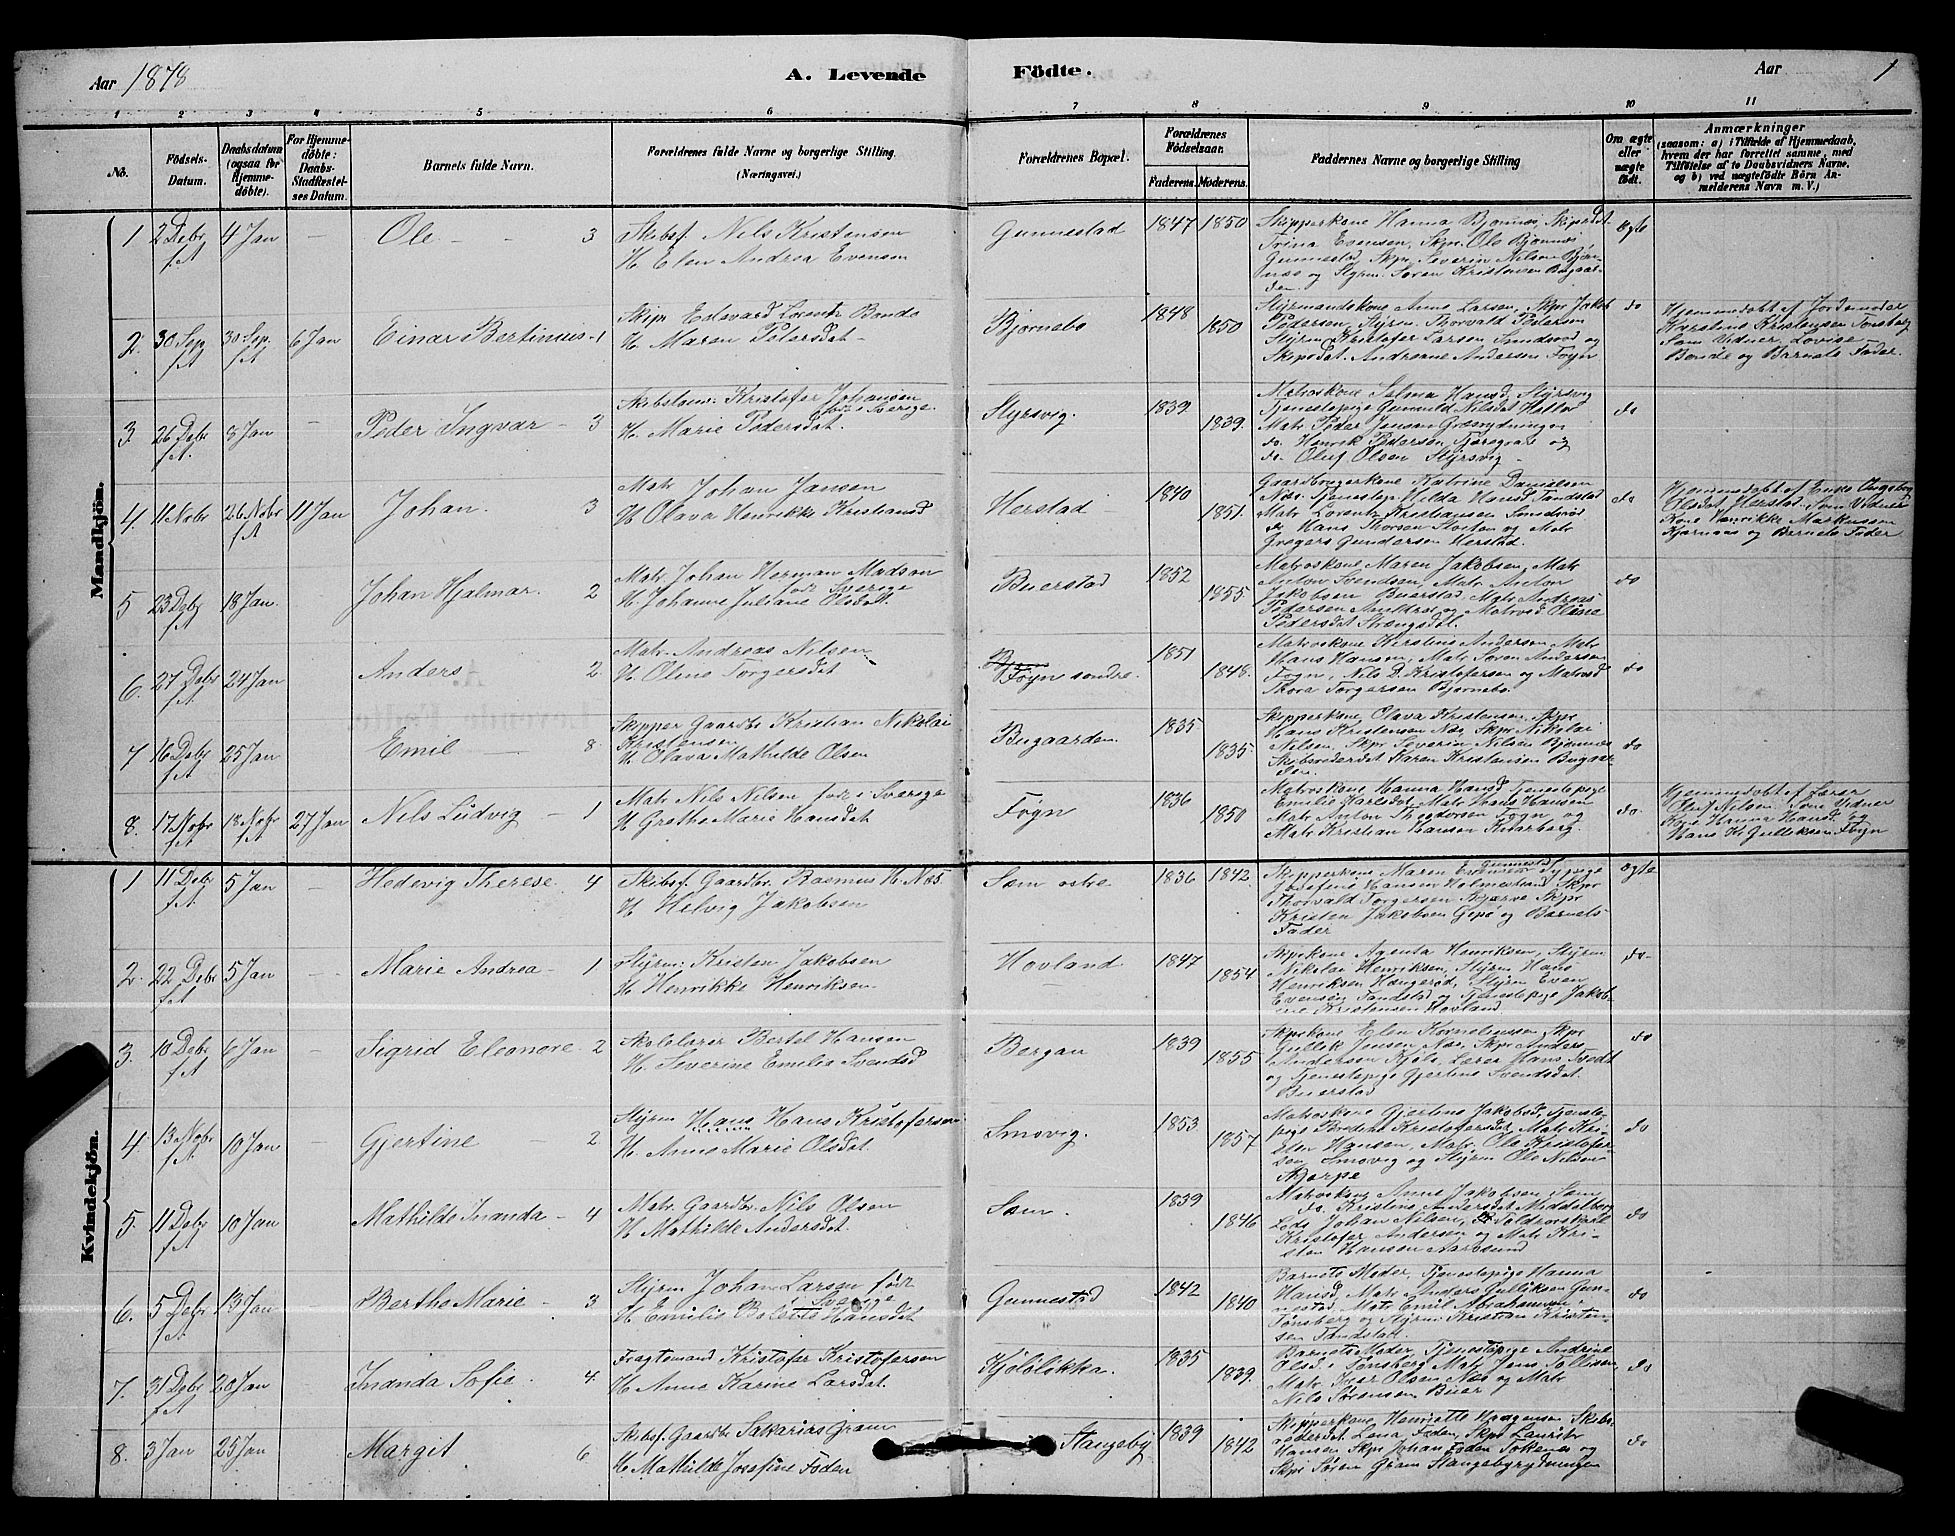 Aar 1878
A. Levende Födte.
Aar 1
1 2 3 4 5 6 7 8 9 10 11
No.
Födsels-Datum.
Daabsdatum (ogsaa for Hjemme-döbte).
For Hjemme-döbte: Daabs-Stadfestel-ses Datum.
Barnets fulde Navn.
Forældrenes fulde Navne og borgerlige Stilling. (Næringsvei.)
Forældrenes Bopæl.
Forældrenes Födselsaar.
Faderens. Moderens.
Faddernes Navne og borgerlige Stilling
Om ægte eller uægte födt.
Anmærkninger
(saasom: a) i Tilfælde af Hjemmedaab,
hvem der har forrettet samme, med
Tilföielse af to Daabsvidners Navne,
og b) ved uægtefödte Börn An-
melderens Navn m. V.)
Mandkjön.
1 2 Debr f.A 4 Jan — Ole — 3
Skibsf. Nils Kristensen
H. Elen Andrea Evensen
Gunnestad 1847 1850
Skipperkone Hanna Bjonnes, Skiprdt.
Trina Evensen, Skpr. Ole Bjonnes
Gunnestad, Skpr. Severin Nilsen Bjön-
næs og Styrm. Soren Kristensen Bugaar-
den.
Ægte
2. 30 Sep f.A 30 Sep. f.A 6 Jan Einar Bertinius 1
Skpr Edevard Lorentz Bonde
H. Maren Petersdat
Bjornebo 1848 1850
Styrmandskone Anne Larsen, Skpr Jakob
Pedersen, Styrm. Thorvald Pedersen
Styrm Kristofer Larsen Sundrød og
Skipsdat. Andreane Andersen Føyn
do
Hjemmedobt af Jordemoder
Karstene Kristensen Tonsberg
Som Vidner Lovise
Bonde og Barnets Fader.
3. 26 Debr f.A 8 Jan — Peder Ingvar 3
Skibstom: Kristofer Johansen
født i Sverige.
H. Marie Pedersdat.
Styrsvig. 1839 1839.
Matroskone Selma Hansd, Styrsvig
Tjenestepige Gunnild Nilsdt
Matr Peder Jensen Græsrydningen
do. Henrik Pedersen og
do. Oluf Olsen Styrsvig
do
4. 11 Nobr 26 Nobr f.A 11 Jan Johan. 3
Matr Johan Jansen
H. Olava Henrikke Kristiansd
Herstad 1840 1851.
Gaardbrugerkone Katrine Danielsen
Næs. Tjenestep. Hilda Hansd Tandstad
Matr Lorentz Kristiansen Sundrød
do Hans Thorsen og Matr
Gregers Gundersen Herstad.
do
Hjemmedobt af Enke Ingeborg
Olsdat Herstad. Som Vidner
Kone Henrikke Markussen
Kjærnaas og Barnets Fader
5 23 Debr f.A 18 Jan. Johan Hjalmar. 2
Matr. Johan Herman Madsen
født Sverige
H. Johanne Juliane Olsdat.
Buerstad 1852 1855.
Matroskone Maren Jakobsen, Matr
Anton Svendsen, Matr Anton
Jakobsen Buerstad, Matr Andreas
Pedersen og Matrosd. Oline
Pedersdat Strengsdal.
do
6. 27 Debr f.A 24 Jan Anders 2.
Matr. Andreas Nilsen
H. Oline Torgersdat
Føyn sondre. 1851 1848.
Matroskone Kirstine Andersen, Matr
Hans Hansen, Matr Soren Andersen
Føyn, Nils D. Kristofersen og Matrosd
Thora Torgersen Bjornebo.
do
7 16 Debr f.A 25 Jan Emil — 8.
Skipper Gaardbr Kristian Nikolai
Kristensen
H. Olava Mathilde Olsen
Bugaarden 1835 1835.
Skipperkone Olava Kristensen, Skpr
Hans Kristensen Næs, Skpr Nikolai
Nilsen, Skpr Severin Nilsen Bjonnes
Skibsrederdt Karen Kristensen Bugaar-
den.
do
8. 17 Nobr f.A 18 Nobr f.A 27 Jan Nils Ludvig — 1
Matr Nils Nilsen født i Sverige
H Grethe Marie Hansdat
Føyn 1836 1850
Matroskone Hanna Hansd, Tjenestepige
Emilie Karlsdat, Matr Hans Hansen
Matr Anton Theodorsen Føyn og
Matr Kristian Hansen Knarberg.
do.
Hjemmedobt af Lærer
Oluf Nilsen. Som Vidner
Kone Hanna Hansd. og
Hans H. Gulleksen Føyn
Kvindekjön.
1 11 Debr f.A 5 Jan — Hedevig Therese. 4
Skibsf. Gaardbr. Rasmus H. Næs
H Helvig Jakobsen
Sæm ostre 1836 1842
Skipperkone Maren Evensen Gunnestad Sypige
Josefine Hansen Holmestrand Skpr
Thorvald Torgersen Kjærre Skpr
Kristen Jakobsen Gipø og Barnets
Fader
ægte
2. 22 Debr f.A 5 Jan — Marie Andrea 1
Styrm: Kristen Jakobsen
H Henrikke Henriksen
Hovland 1847 1854
Skprkone Agenta Henriksen, Styrm
Nikolai Henriksen, Styrm Hans
Henriksen Haugerød, Styrm Even
Evensen Tandstad og Tjenestepige Jakob-
ine Kristensen Hovland
do
3. 10 Debr f.A 6 Jan — Sigrid Eleonore 2
Skolelærer Bertel Hansen
H. Severine Emilie Svendsd
Bergan 1839 1855
Skprkone Elen Kornelussen, Skpr
Gullek Jensen Næs, Skpr Anders
Andersen Kjøle Lærer Hans Tvedt
og Tjenestepige Gjertine Svendsdat.
Buerstad
do
4. 13 Nobr f.A 10 Jan — Gjertine 2
Styrm Hans Hans Kristofersen
H. Anne Marie Olsdat.
Smovig. 1853 1857
Matroskone Gjertine Jakobsd, Tjeneste-
pige Kristofersdt, Matr Kri-
sten Hansen, Matr. Ole Kristofer-
sen Smovig og Styrm Ole Nilsen
Skarpe
do
5. 11 Debr f.A 10 Jan Mathilde Inanda — 4
Matr. Gaardbr. Nils Olsen
H Mathilde Andersdat.
Sæm. 1839 1846
Matroskone Anne Jakobsen Sæm
do. Kristens Andersdat Middelborg
Lods Johan Nilsen, Toldroerskarl
Kristofer Andersen og Matr Kri-
sten Hansen Aarøsund
do
6. 5 Debr f.A 13 Jan Berthe Marie 3
Styrm Johan Larsen født
Sverige
H. Emilie Bolette Hansdat
Gunnestad 1842 1840
Barnets Moder, Tjenestepige Hanna
Hansd, Matr Anders Gulliksen Gun-
nestad, Matr Emil Abrahamsen
Tønsberg og Styrm: Kristian Kristen-
sen Tandstad.
do
7. 31 Debr f.A 20 Jan Inanda Sofie 4.
Fragtemand Kristofer Kristofersen
H. Anne Karine Larsdat.
Kjøløløkka. 1835 1839.
Barnets Moder, Tjenestepige Andrine
Olsd i Tønsberg Matr Jens Tollissen
Matr Ivar Olsen Næs og Matr
Nils Sørensen Buer
do
8. 3 Jan 25 Jan Margit 6
Skibsf. Gaardbr Sakarias Gram
H Mathilde Josefine Foden
Stangeby 1839 1842
Skipperkone Henriette Haagensen Skibs-
rederdt Lena Foden, Skpr Lauritz
Hansen Skpr Johan Foden Tokenes og
Skpr Søren Gram Stangebyrydningen
do